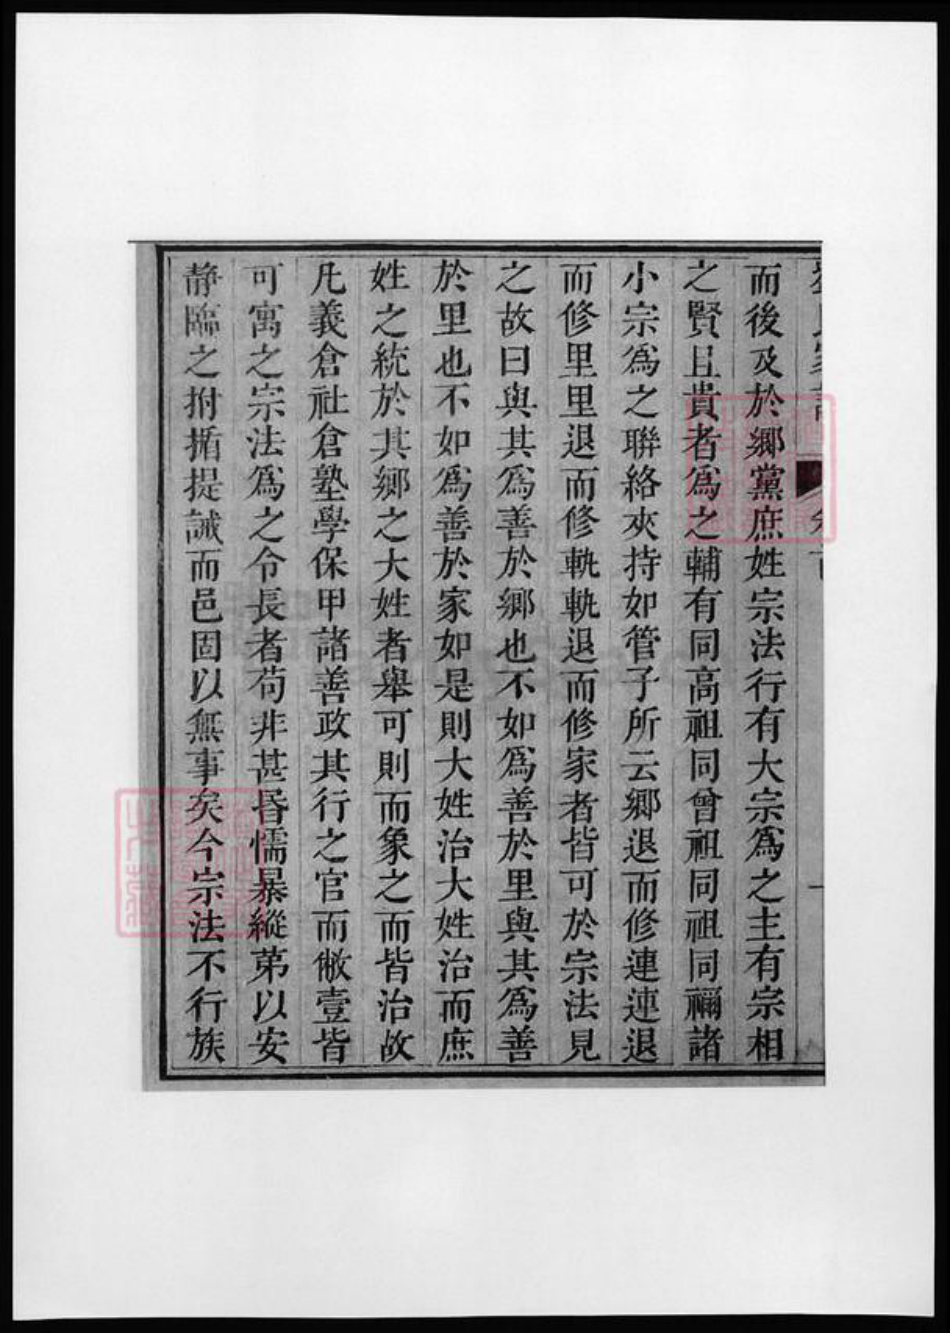 而後及於鄉黨庶姓宗法行有大宗為之主有宗相
之賢且貴者為之輔有同高祖同曾祖同祖同禰諸
小宗為之聯絡夾持如管子所云鄉退而修連連退
而修里里退而修軌軌退而修家者皆可於宗法見
之故曰與其為善於鄉也不如為善於里與其為善
於里也不如為善於家如是則大姓治大姓治而庶
姓之統於其鄉之大姓者舉可則而象之而皆治故
凡義倉社倉塾學保甲諸善政其行之官而敝壹皆
可寓之宗法為之令長者苟非甚昬懦暴縱第以安
静臨之拊揗提誡而邑固以無事矣今宗法不行族